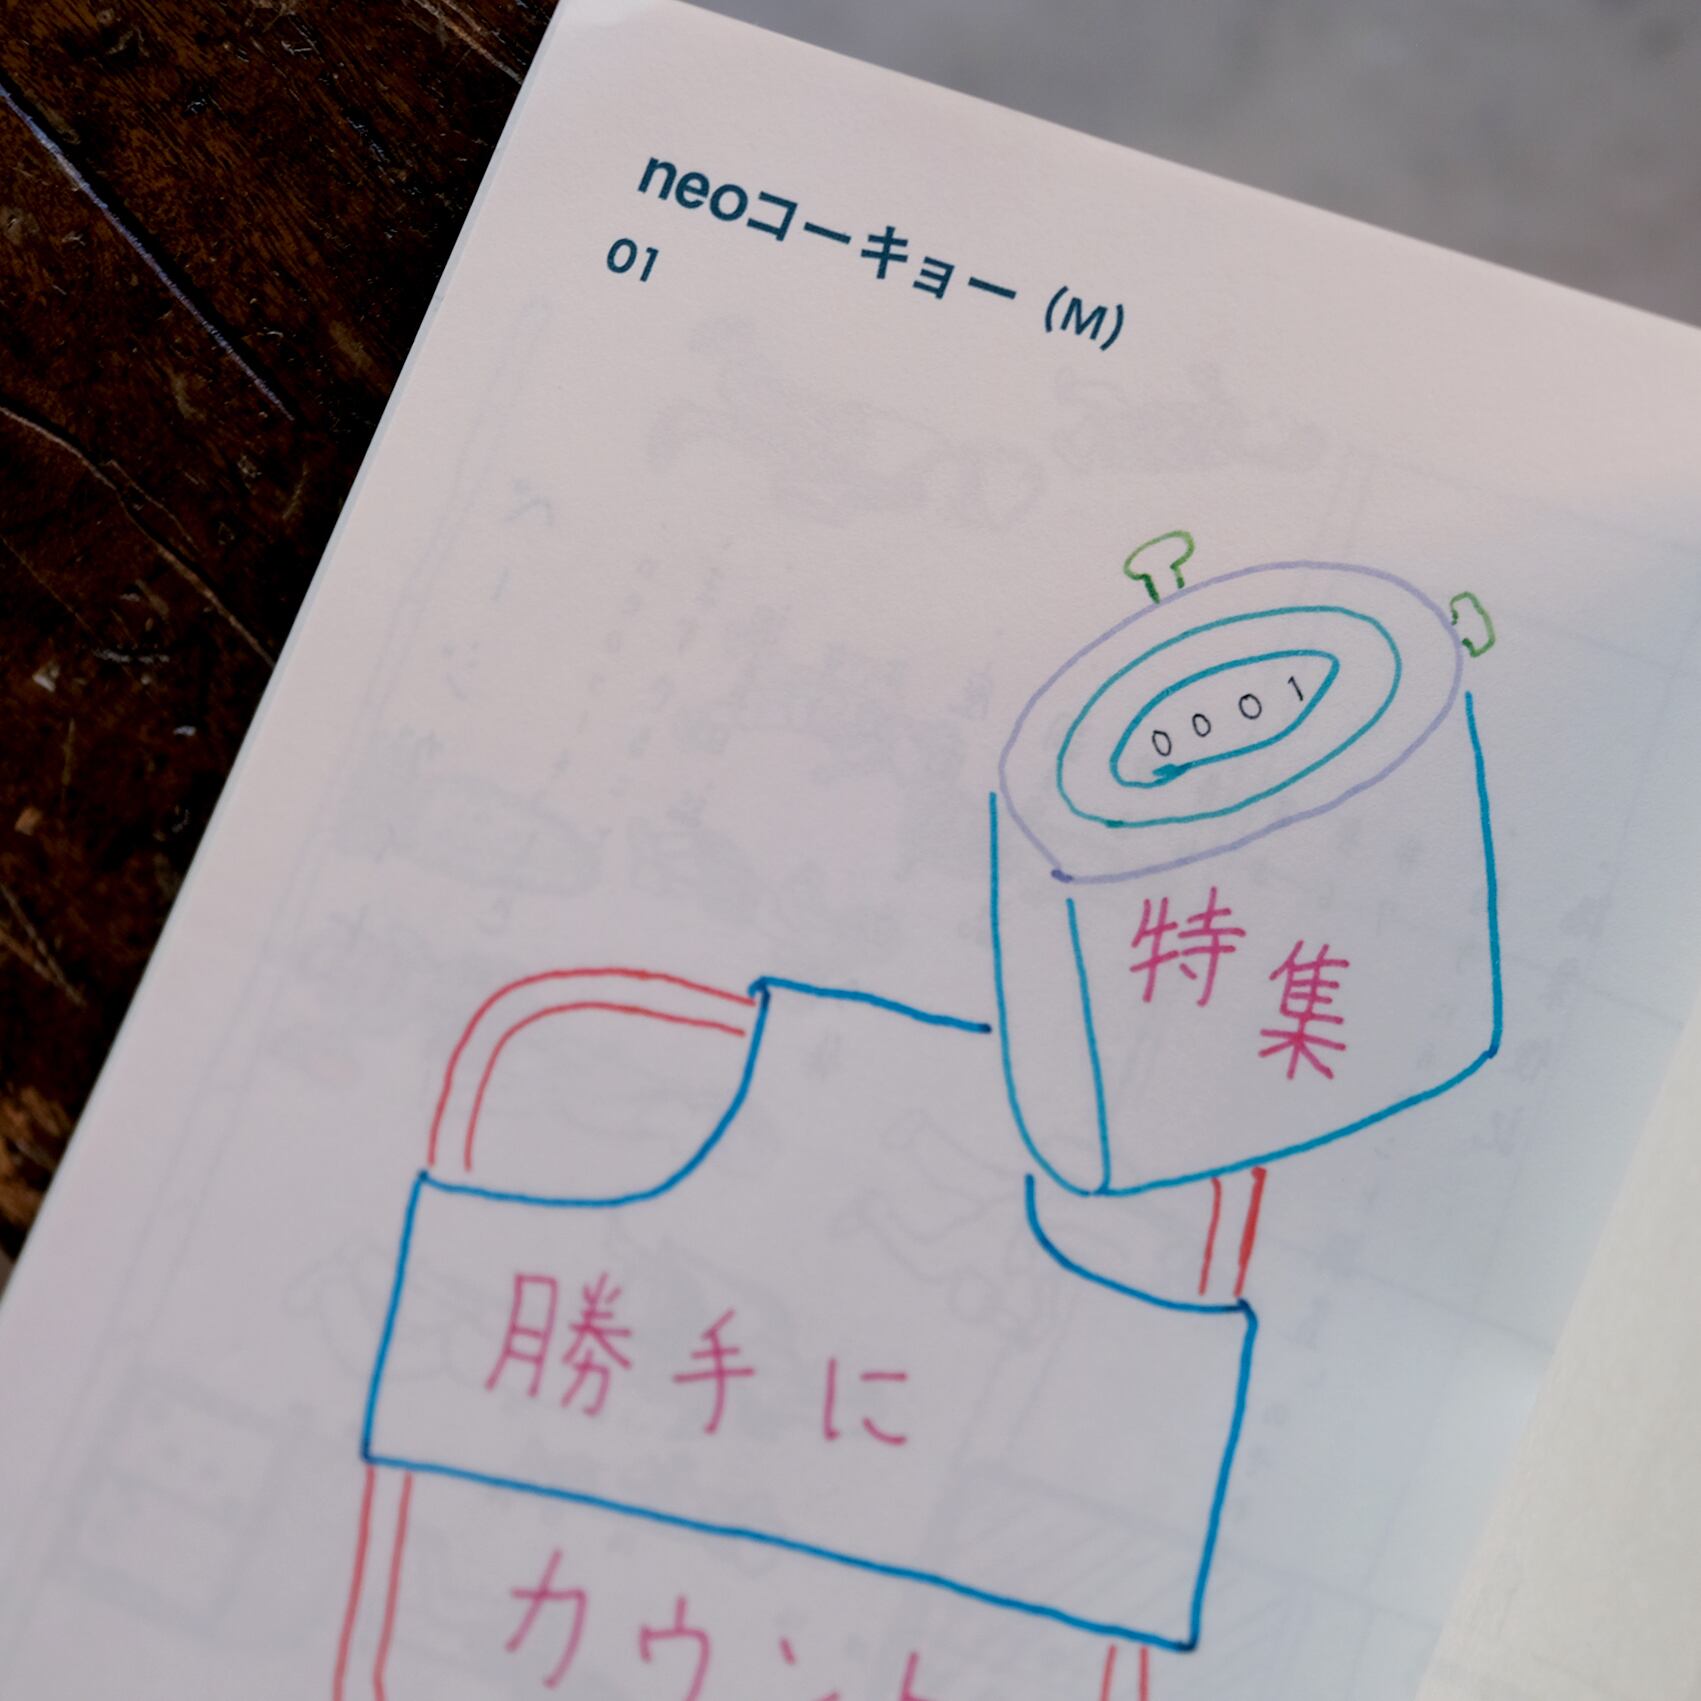 neoコーキョー (M)
01
0001
特集
勝手に
カウント